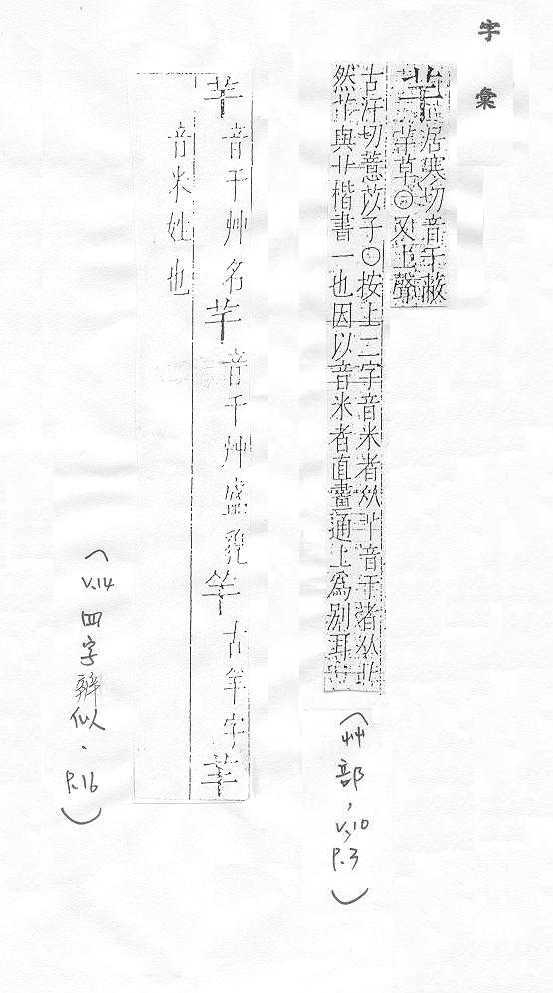 字彙
芉居寒切音干蔽
芉草〇又上聲
古汗切薏苡子〇按上二字音米者从丷音干者从艸
然艸與卝楷書一也因以音米者直畫通上為別耳
(艸部, V.10 P.3)
芉音干艸名芊音千艸盛皃𦍌古羊字芈
音米姓也
(V.14 四字辨似. P.16)